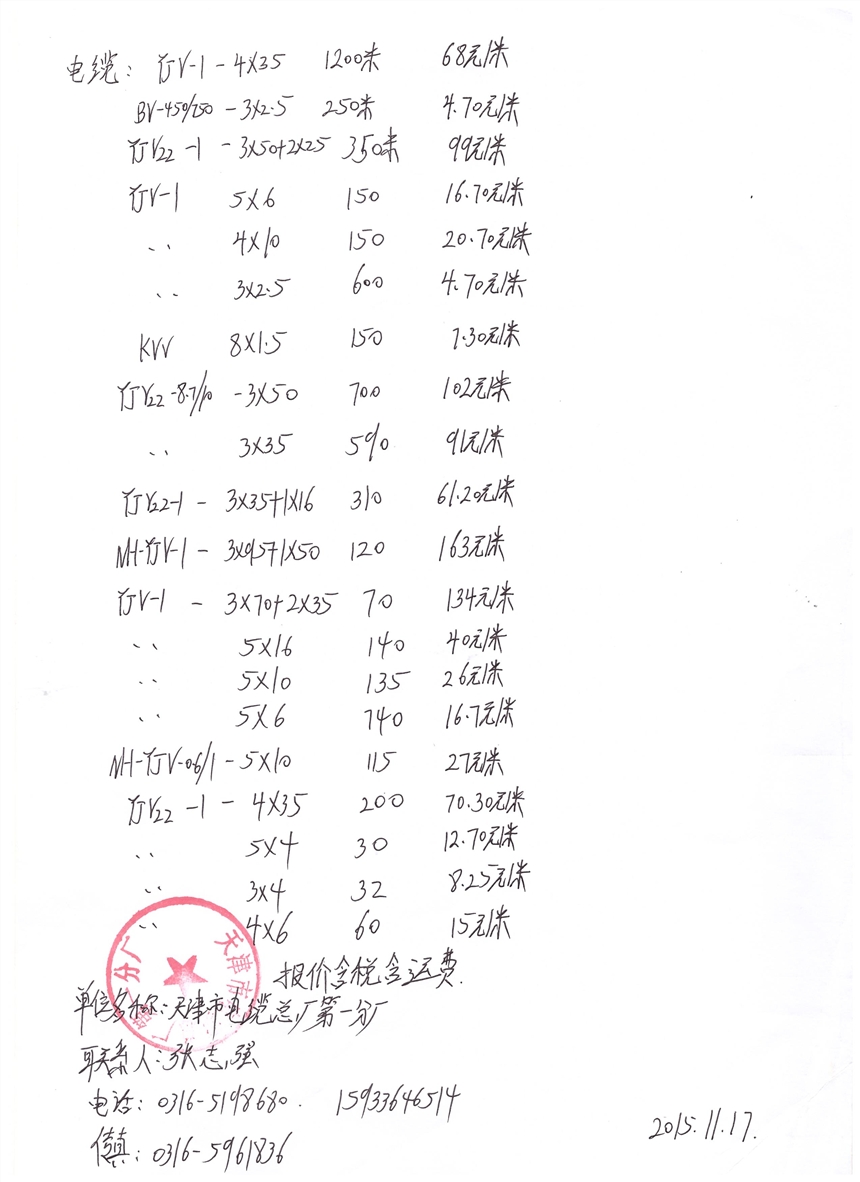 电缆: YJV-1-4X35 1200米 68元/米
BV-450/750-3X2.5 250米 4.70元/米
YJV22-1-3X50+2X25 350米 99元/米
YJV-1 5X6 150 16.70元/米
〃 4X10 150 20.70元/米
〃 3X2.5 600 4.70元/米
KVV 8X1.5 150 7.30元/米
YJV22-8.7/10-3X50 700 102元/米
〃 3X35 590 91元/米
YJV22-1-3X35+1X16 310 61.20元/米
NH-YJV-1-3X95+1X50 120 163元/米
YJV-1-3X70+2X35 70 134元/米
〃 5X16 140 40元/米
〃 5X10 135 26元/米
〃 5X6 740 16.7元/米
NH-YJV-0.6/1-5X10 115 27元/米
YJV22-1-4X35 200 70.30元/米
〃 5X4 30 12.70元/米
〃 3X4 32 8.25元/米
〃 4X6 60 15元/米
报价含税含运费.
单位名称:天津市电缆总厂第一分厂
联系人:张志强
电话: 0316-5198680. 15933646514
传真: 0316-5961836
2015.11.17.
天津市
分厂